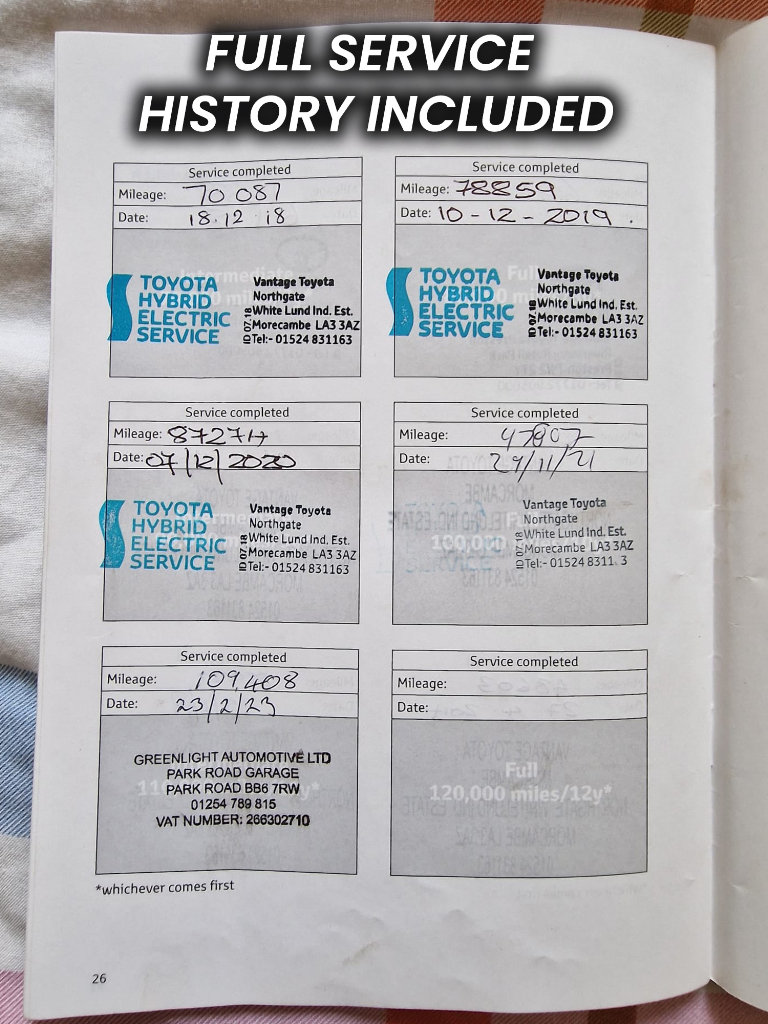 FULL SERVICE
HISTORY INCLUDED
Service completed
Mileage: 70 087
Date: 18.12.18
TOYOTA
HYBRID
ELECTRIC
SERVICE
Vantage Toyota
Northgate
White Lund Ind. Est.
Morecambe LA3 3AZ
Tel:- 01524 831163
ID 07.18
Service completed
Mileage: 78859
Date: 10-12-2019.
Full
TOYOTA
HYBRID
ELECTRIC
SERVICE
Vantage Toyota
Northgate
White Lund Ind. Est.
Morecambe LA3 3AZ
Tel:- 01524 831163
ID 07.18
Service completed
Mileage:
Date: 07/12/2020
TOYOTA
HYBRID
ELECTRIC
SERVICE
Vantage Toyota
Northgate
White Lund Ind. Est.
Morecambe LA3 3AZ
Tel:- 01524 831163
ID 07.18
Service completed
Mileage:
Date:
100,000
Vantage Toyota
Northgate
White Lund Ind. Est.
Morecambe LA3 3AZ
Tel:- 01524 8311 3
ID 07.18
Service completed
Mileage: 109,408
Date: 23/2/23
GREENLIGHT AUTOMOTIVE LTD
PARK ROAD GARAGE
PARK ROAD BB6 7RW
01254 789 815
VAT NUMBER: 266302710
Service completed
Mileage:
Date:
Full
120,000 miles/12y*
*whichever comes first
26